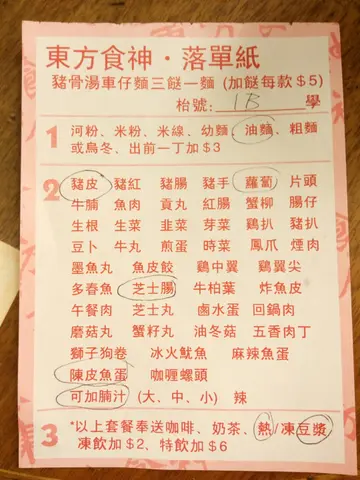 東方食神·落單紙
豬骨湯車仔麵三餸一麵 (加餸每款$5)
枱號: 1B 學
1 河粉、米粉、米線、幼麵、油麵、粗麵
或烏冬、出前一丁加$3
2 豬皮 豬紅 豬腸 豬手 蘿蔔 片頭
牛腩 魚肉 貢丸 紅腸 蟹柳 腸仔
生根 生菜 韭菜 芽菜 鷄扒 豬扒
豆卜 牛丸 煎蛋 時菜 鳳爪 煙肉
墨魚丸 魚皮餃 鷄中翼 鷄翼尖
多春魚 芝士腸 牛柏葉 炸魚皮
午餐肉 芝士丸 鹵水蛋 回鍋肉
磨菇丸 蟹籽丸 油冬菇 五香肉丁
獅子狗卷 冰火魷魚 麻辣魚蛋
陳皮魚蛋 咖喱螺頭
可加腩汁 (大、中、小) 辣
3 *以上套餐奉送咖啡、奶茶、熱/凍豆漿
凍飲加$2、特飲加$6